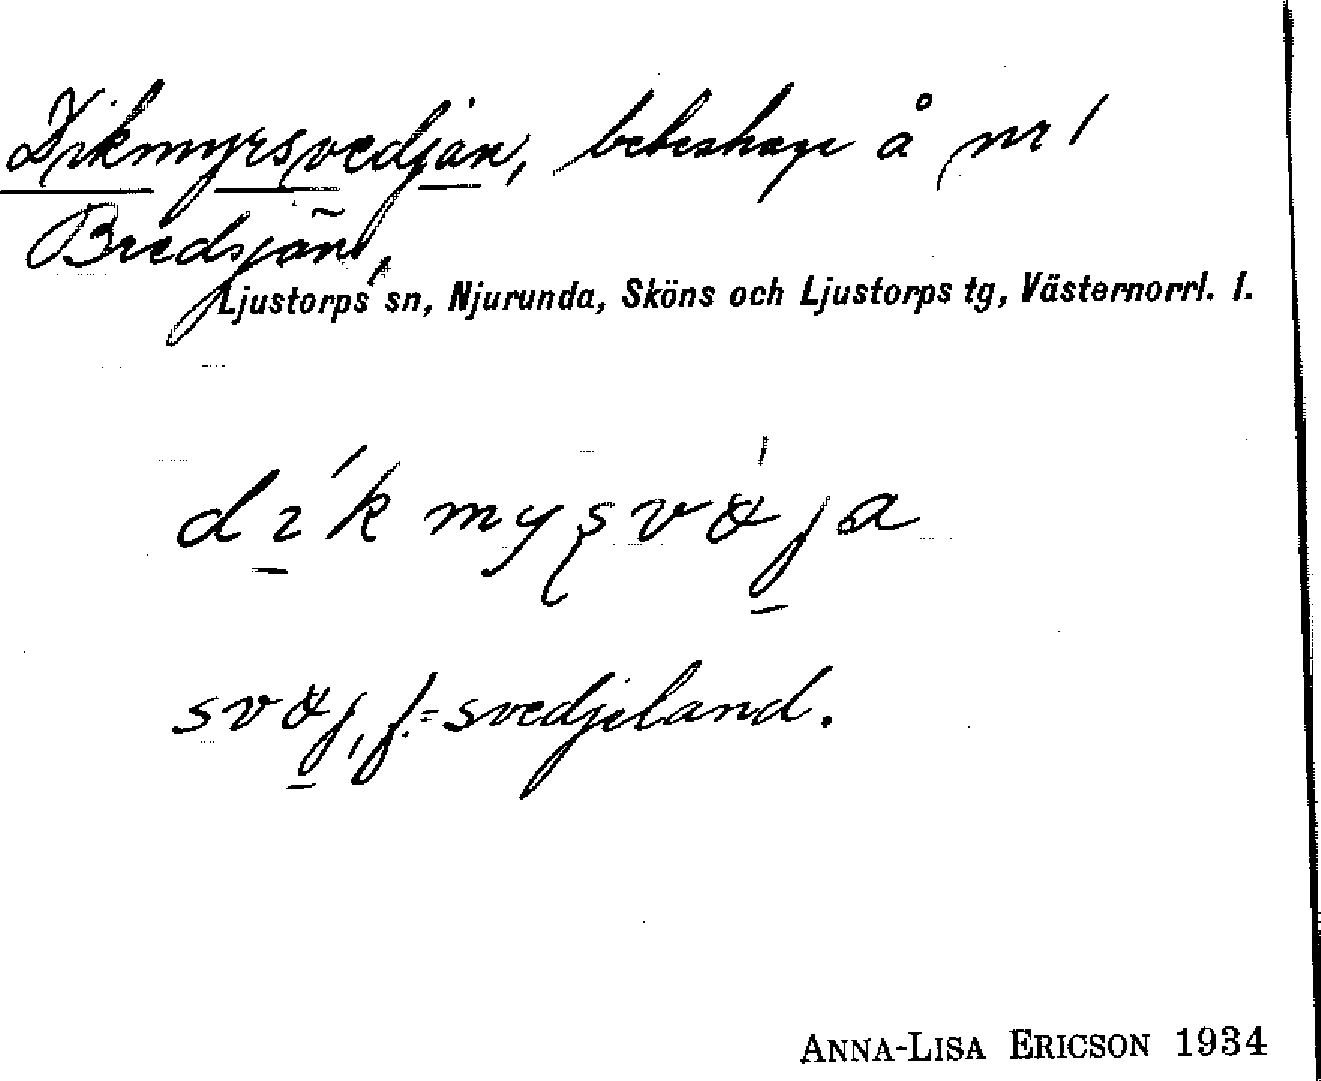 Dikmyrsvedjan, beteshage å nr 1
Bredsjön,
Ljustorps sn, Njurunda, Sköns och Ljustorps tg, Västernorrl. l.
svæj, f. = svedjeland.
ANNA-LISA ERICSON 1934